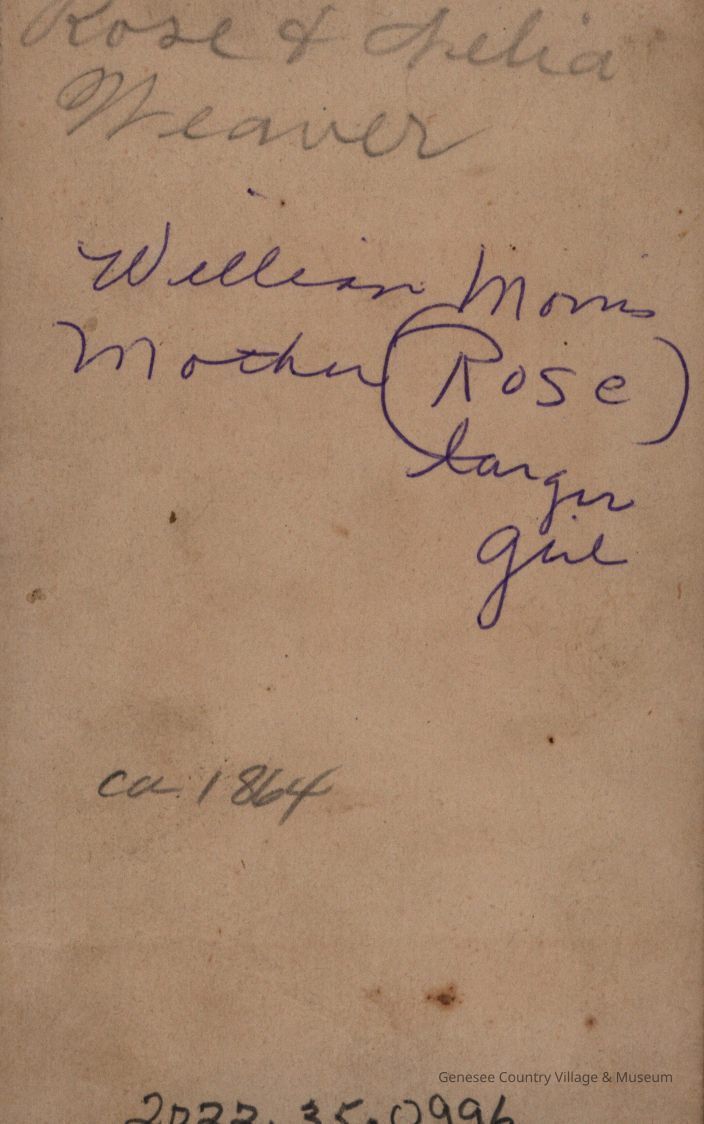 Rose & Delia
Weaver
William Morris
Mother (Rose)
larger
girl
ca 1864
Genesee Country Village & Museum
2022.35.0996